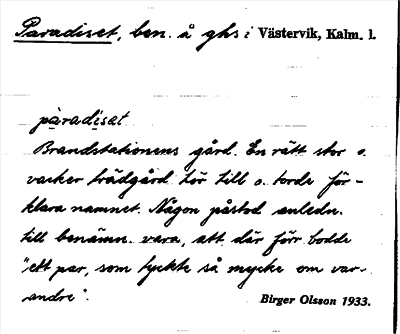 Paradiset, ben. å ghs i Västervik, Kalm. l.
pàradi̇set
Brandstationens gård. En rätt stor o.
vacker trädgård hör till o. torde för-
klara namnet. Någon påstod anledn.
till benämn. vara, att där förr bodde
"ett par, som tyckte så mycke om var-
andre".
Birger Olsson 1933.